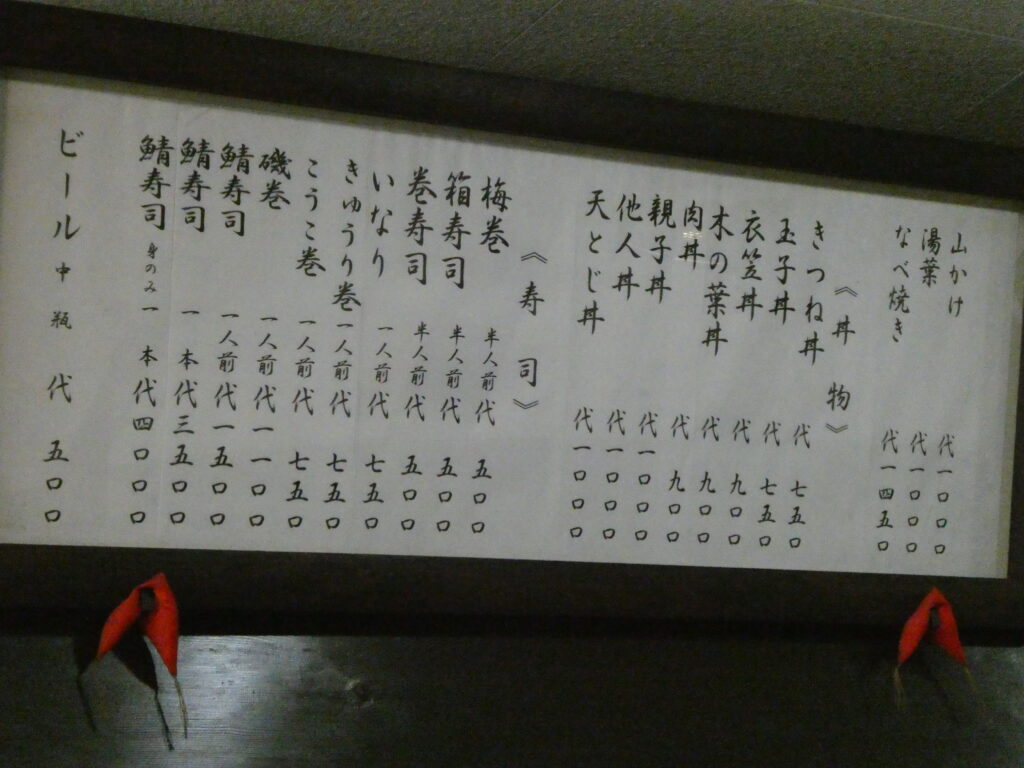 山かけ 代一〇〇〇
湯葉 代一〇〇〇
なべ焼き 代一四五〇
《丼物》
きつね丼 代七五〇
玉子丼 代七五〇
衣笠丼 代九〇〇
木の葉丼 代九〇〇
肉丼 代九〇〇
親子丼 代一〇〇〇
他人丼 代一〇〇〇
天とじ丼 代一〇〇〇
《寿司》
梅巻 半人前 代五〇〇
箱寿司 半人前 代五〇〇
巻寿司 半人前 代五〇〇
いなり 一人前 代七五〇
きゅうり巻 一人前 代七五〇
こうこ巻 一人前 代七五〇
磯巻 一人前 代一一〇〇
鯖寿司 一人前 代一五〇〇
鯖寿司 一本 代三五〇〇
鯖寿司 身のみ 一本 代四〇〇〇
ビール 中瓶 代五〇〇